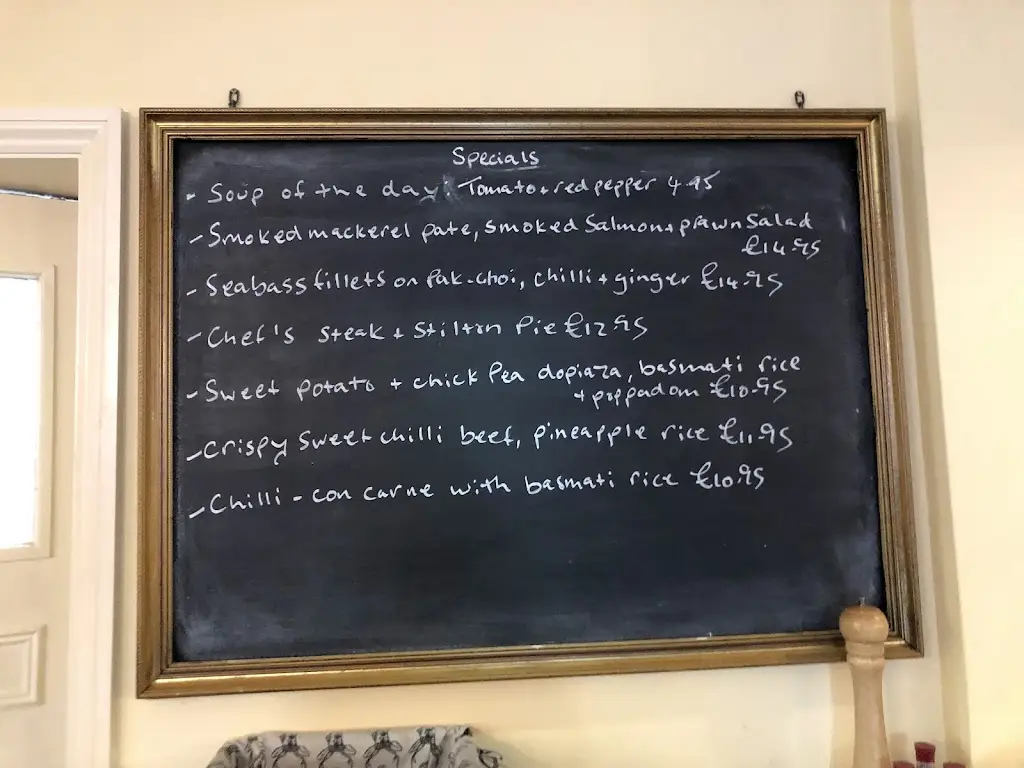 Specials
- Soup of the day: Tomato + red pepper 4.95
- Smoked mackerel pate, smoked Salmon + prawn Salad
£14.95
- Seabass fillets on Pak-choi, chilli + ginger £14.95
- Chef's steak + Stilton Pie £12.95
- Sweet potato + chick Pea dopiaza, basmati rice
+ poppadom £10.95
- Crispy sweet chilli beef, pineapple rice £11.95
- Chilli - con carne with basmati rice £10.95